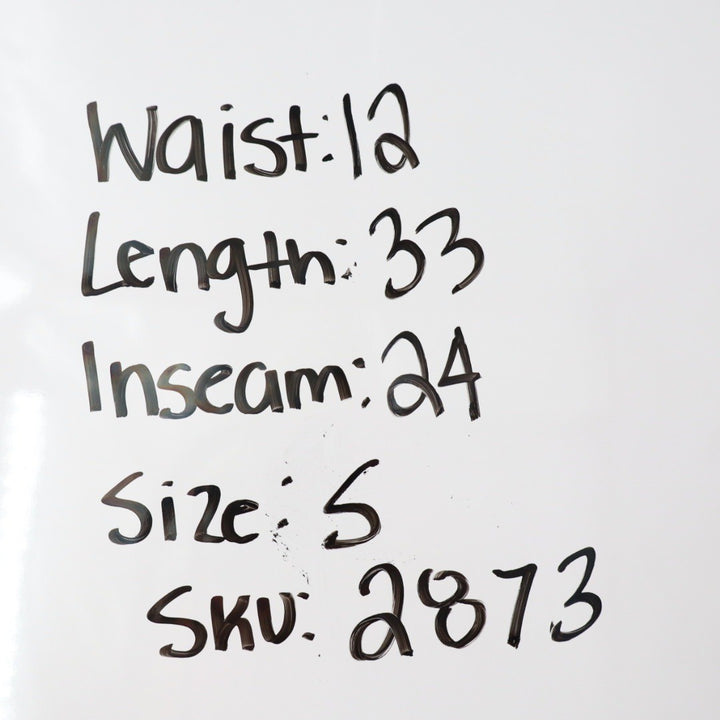 Waist: 12
Length: 33
Inseam: 24
Size: S
SKU: 2873